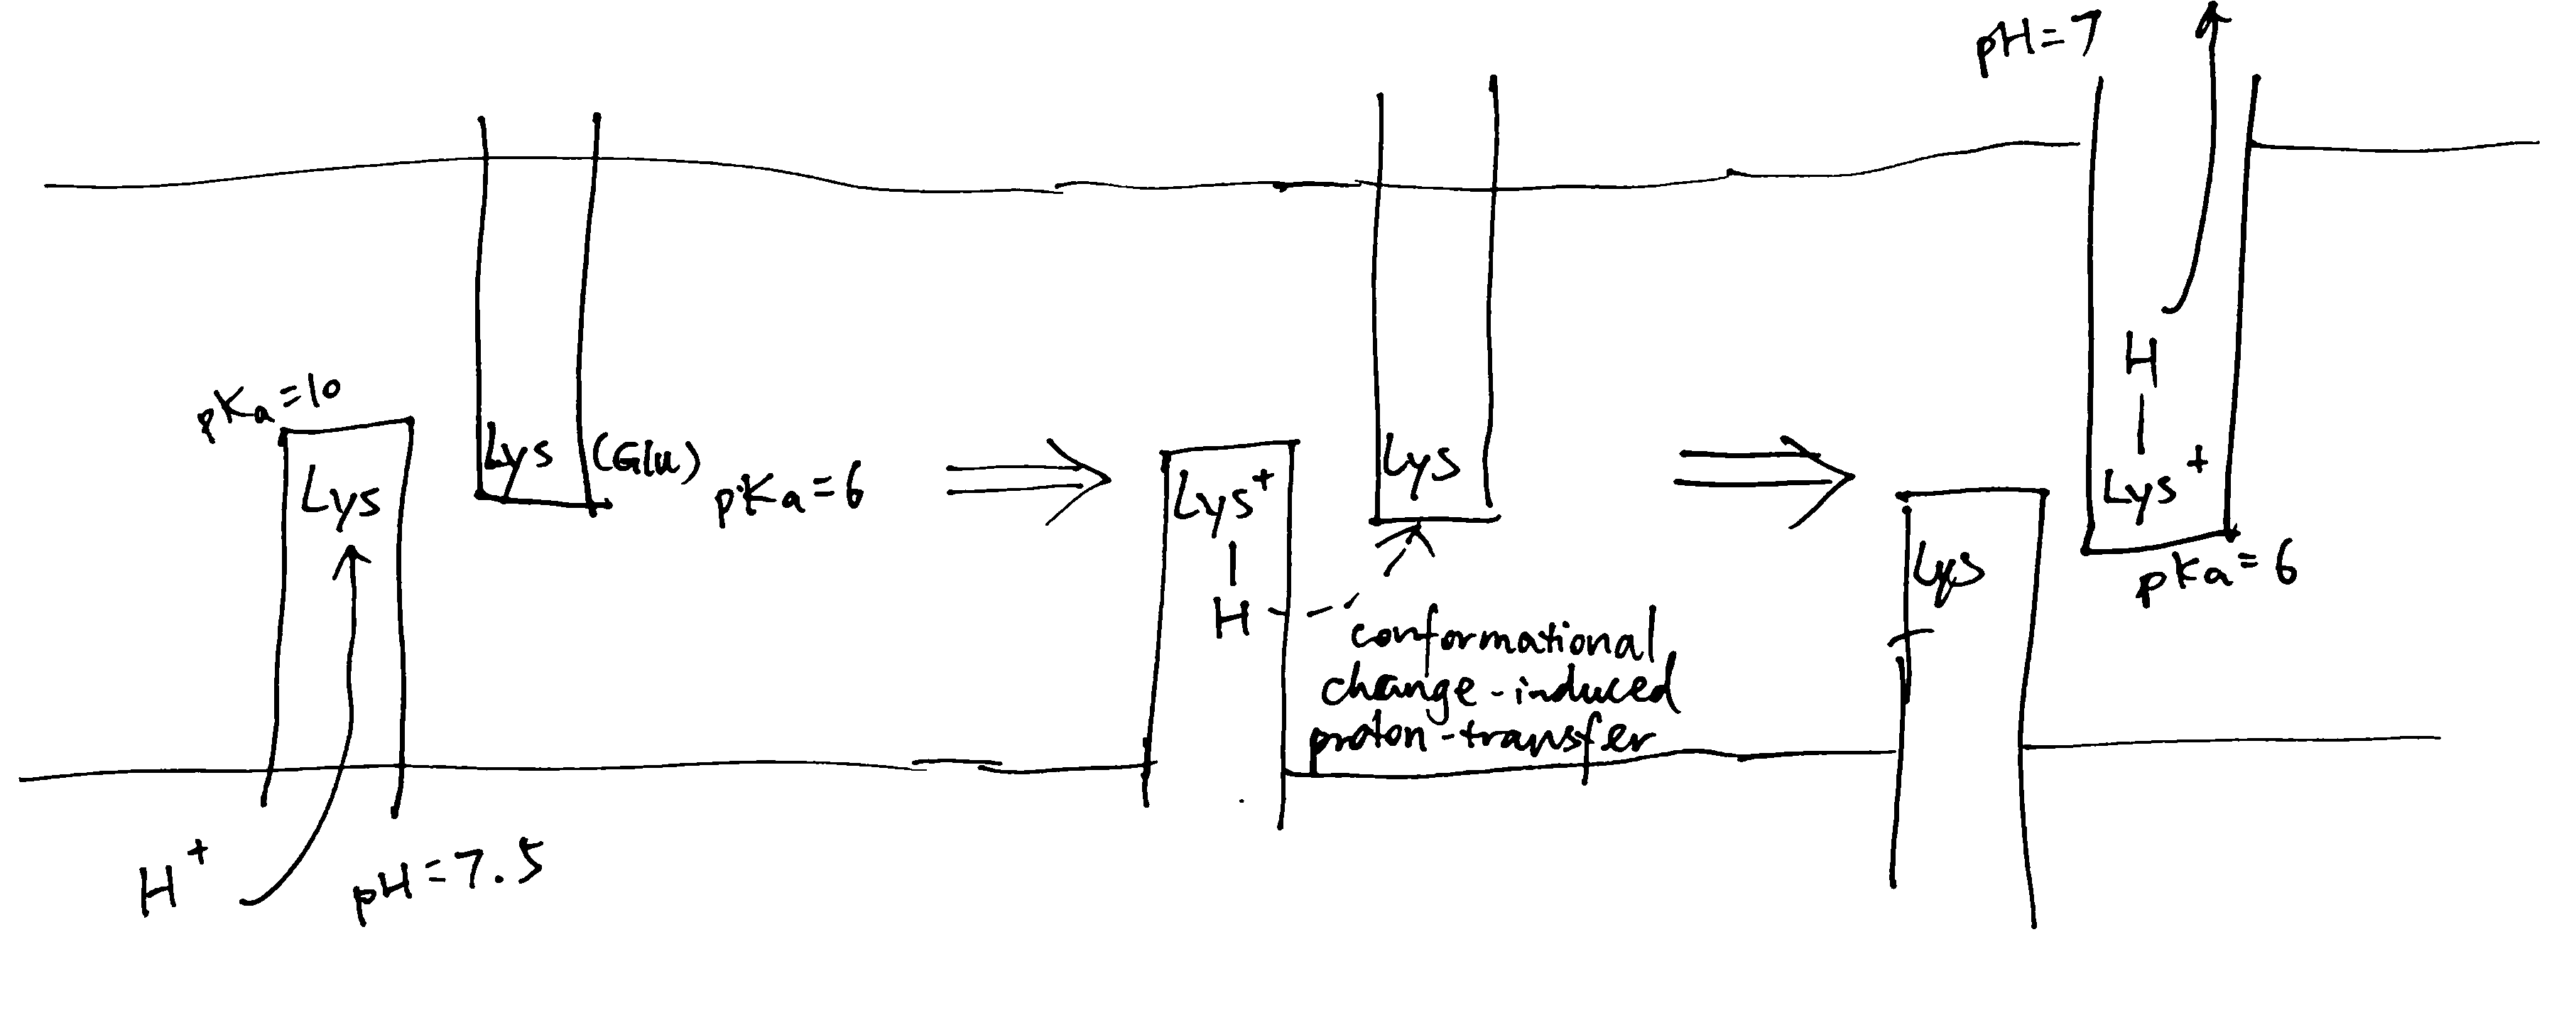 pKa=10
Lys
H+
pH=7.5
Lys (Glu)
pKa=6
Lys+
H
Lys
conformational
change-induced
proton-transfer
Lys
pH=7
H
Lys+
pKa=6